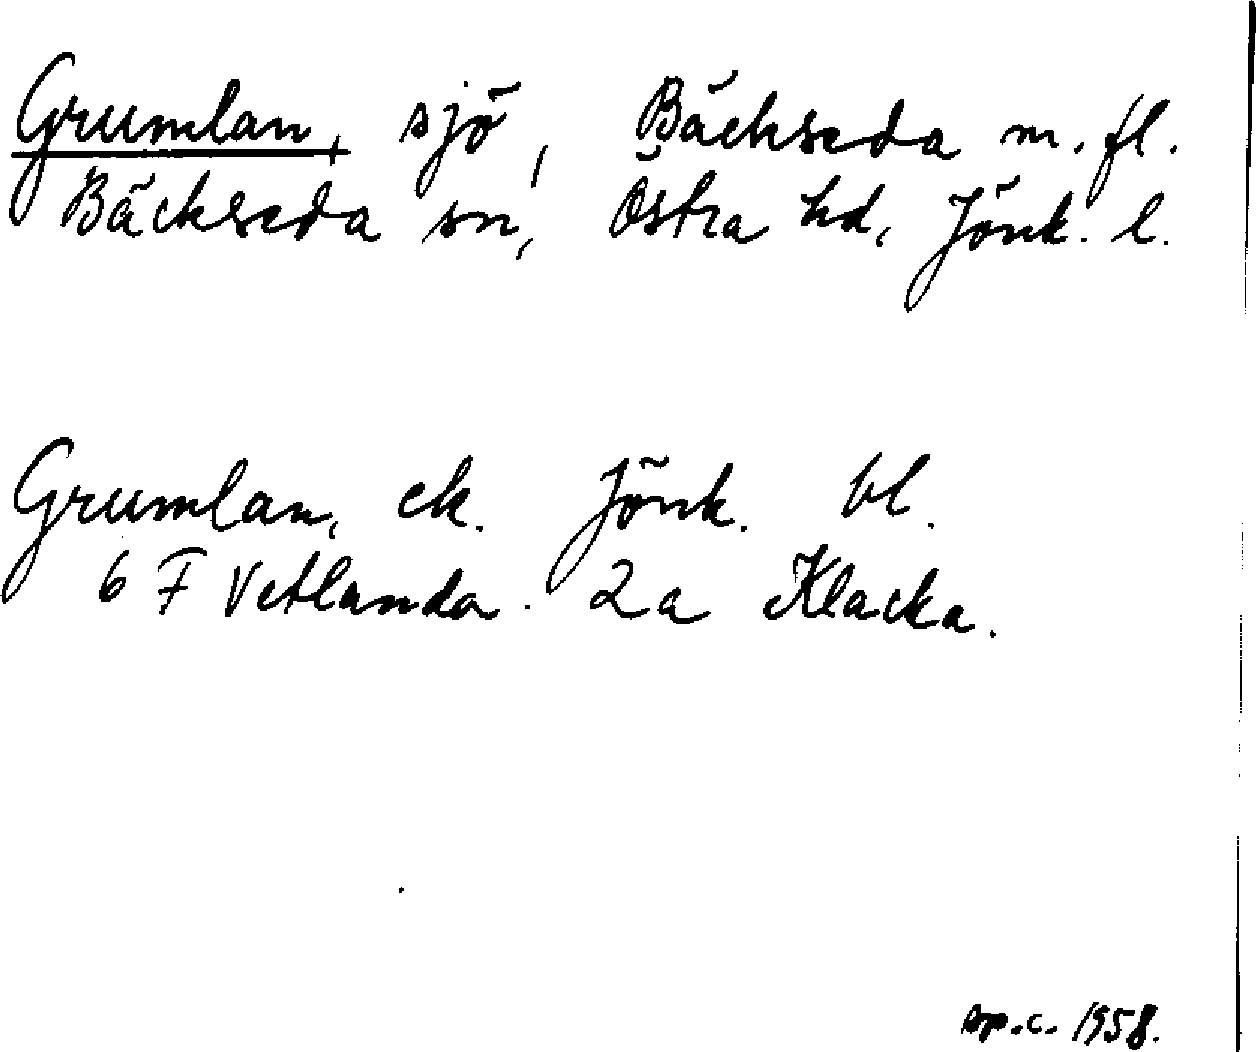 Grumlan, sjö, Bäckseda m. fl.
Bäckseda sn, Östra hd, Jönk. l.
Grumlan, ek. Jönk. bl.
6 F Vetlanda. 2a Klacka.
sp.c. 1958.